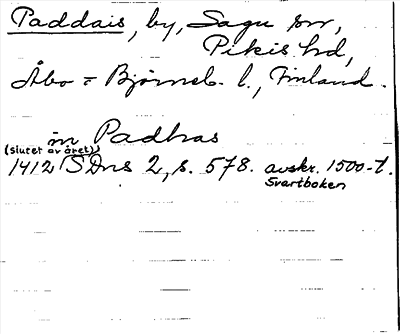 Paddais, by, Sagu sn,
Pikis hd,
Åbo = Björneb. l., Finland.
in Padhas
(slutet av året)
1412 SDns 2, s. 578. avskr. 1500-t.
Svartboken